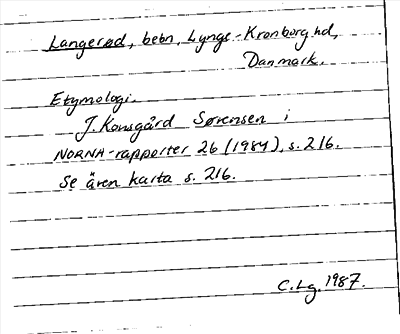 Langerød, bebn, Lynge-Kronborg hd,
Danmark.
Etymologi.
J. Kousgård Sørensen i
NORNA-rapporter 26 (1984), s. 216.
Se även karta s. 216.
C.Lg. 1987.